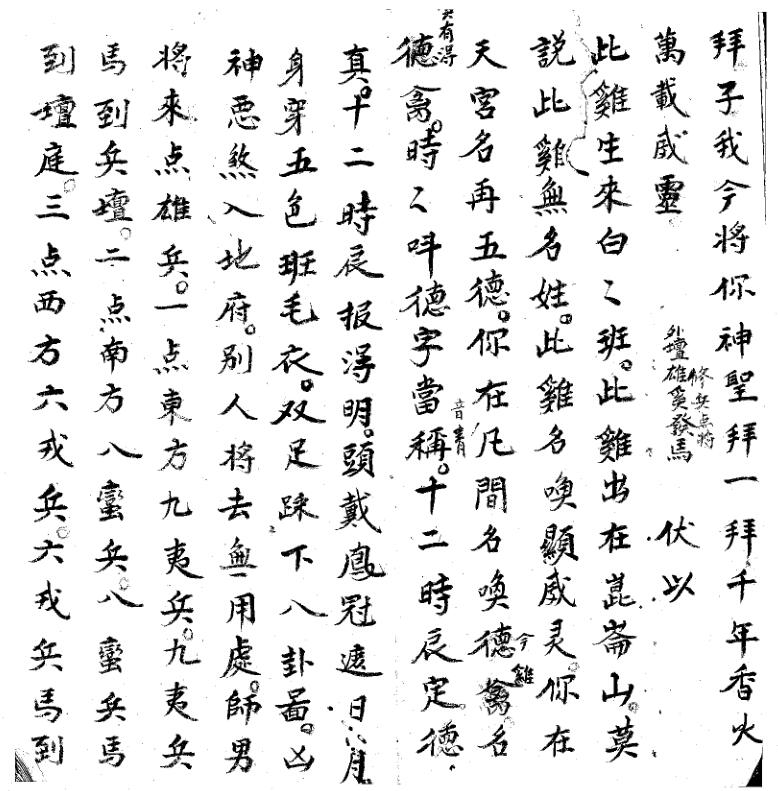 拜子我今将你神聖拜一拜千年香火
萬載威靈
外壇雄兵發馬
修兵点将
伏以
此雞生來白〻班。此雞出在崑崙山。莫
説此雞無名姓。此雞名喚顯威灵。你在
天宮名再五德。你在凡間名喚德禽名
今雞
又有得
德禽。時〻呌德字當稱。十二時辰定德
音青
真。十二時辰报得明。頭戴鳳冠遮日月
身穿五色班毛衣。双足踩下八卦啚。凶
神悪煞入地府。别人将去無用處。師男
将來点雄兵。一点東方九夷兵。九夷兵
馬到兵壇。二点南方八蛮兵。八蛮兵馬
到壇庭。三点西方六戎兵。六戎兵馬到